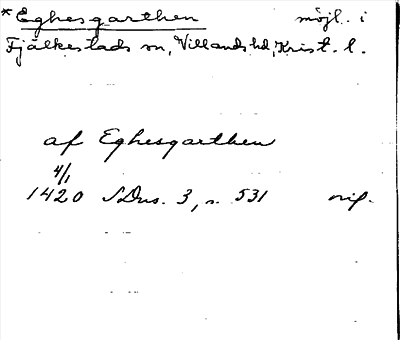 *Eghesgarthen möjl. i
Fjälkestads sn, Villands hd, Krist. l.
af Eghesgarthen
4/1
1420 SDns. 3, s. 531 orig.